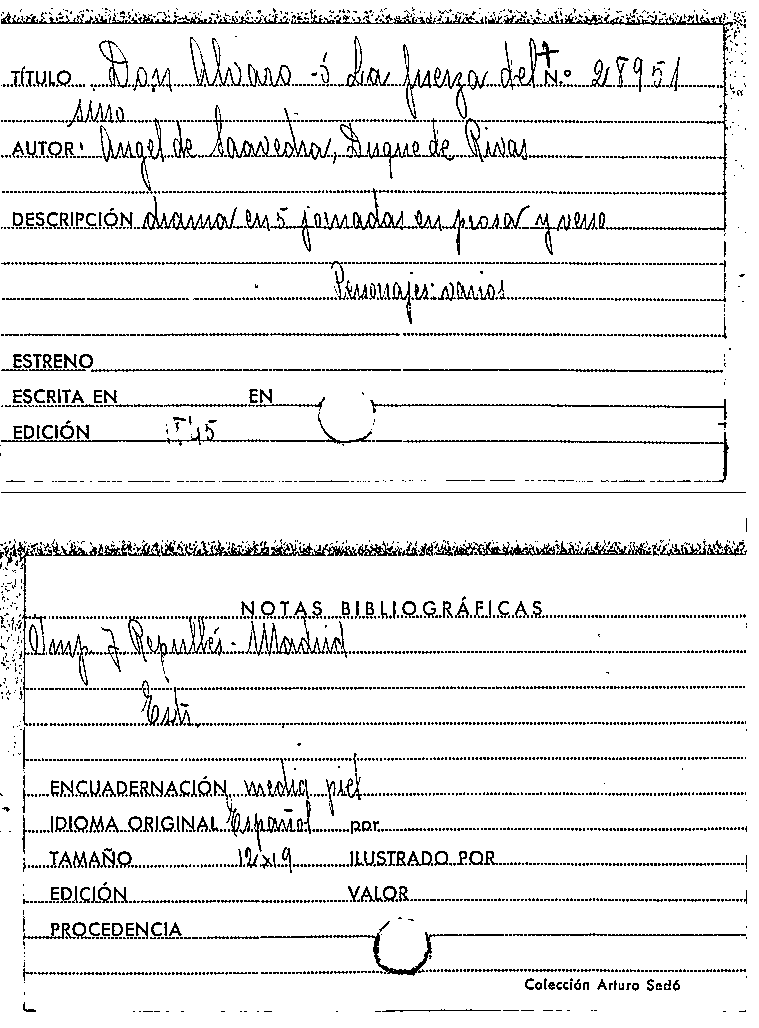 TÍTULO Don Alvaro -ó La fuerza del N.º 28951
sino
AUTOR Angel de Saavedra, Duque de Rivas
DESCRIPCIÓN drama en 5 jornadas en prosa y verso
Personajes: varios
ESTRENO
ESCRITA EN EN
EDICIÓN
NOTAS BIBLIOGRÁFICAS
Imp. J Repullés - Madrid
ENCUADERNACIÓN media piel
IDIOMA ORIGINAL Español por
TAMAÑO 12x19 ILUSTRADO POR
EDICIÓN VALOR
PROCEDENCIA
Colección Arturo Sedó